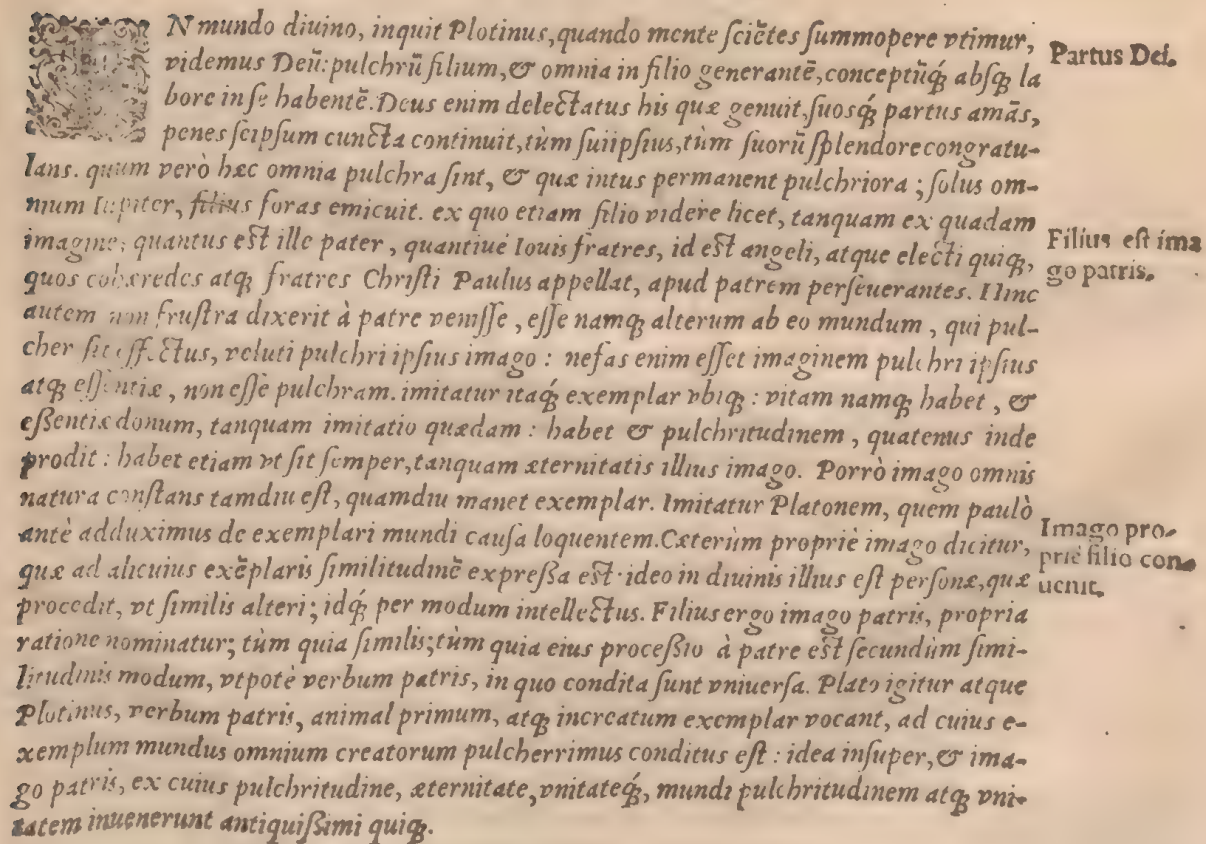 IN mundo diuino, inquit Plotinus, quando mente sciẽtes summopere vtimur,
videmus Deũ: pulchrũ filium, & omnia in filio generantẽ, conceptũq́; absq; la
bore in se habentẽ. Deus enim delectatus his quæ genuit, suosq́; partus amãs,
penes seipsum cuncta continuit, tùm suiipsius, tùm suorũ splendore congratu-
lans. quum verò hæc omnia pulchra sint, & quæ intus permanent pulchriora; solus om-
nium Iupiter, filius foras emicuit. ex quo etiam filio videre licet, tanquam ex quadam
imagine; quantus est ille pater, quantiué Iouis fratres, id est angeli, atque electi quiq;,
quos cohæredes atq; fratres Christi Paulus appellat, apud patrem perseuerantes. Hinc
autem non frustra dixerit à patre venisse, esse namq; alterum ab eo mundum, qui pul-
cher sit effectus, veluti pulchri ipsius imago: nefas enim esset imaginem pulchri ipsius
atq; essentiæ, non esse pulchram. imitatur itaq́; exemplar vbiq;: vitam namq; habet, &
essentiæ donum, tanquam imitatio quædam: habet & pulchritudinem, quatenus inde
prodit: habet etiam vt sit semper, tanquam æternitatis illius imago. Porrò imago omnis
natura constans tamdiu est, quamdiu manet exemplar. Imitatur Platonem, quem paulò
antè adduximus de exemplari mundi causa loquentem. Cæterùm propriè imago dicitur,
quæ ad alicuius exẽplaris similitudinẽ expressa est. ideo in diuinis illius est personæ, quæ
procedit, vt similis alteri; idq́; per modum intellectus. Filius ergo imago patris, propria
ratione nominatur; tùm quia similis; tùm quia eius processio à patre est secundùm simi-
litudinis modum, vtpotè verbum patris, in quo condita sunt vniuersa. Plato igitur atque
Plotinus, verbum patris, animal primum, atq; increatum exemplar vocant, ad cuius e-
xemplum mundus omnium creatorum pulcherrimus conditus est: idea insuper, & ima-
go patris, ex cuius pulchritudine, æternitate, vnitateq́;, mundi pulchritudinem atq; vni-
tatem inuenerunt antiquissimi quiq;.
Partus Dei.
Filius est ima
go patris.
Imago pro-
prie filio con-
uenit.